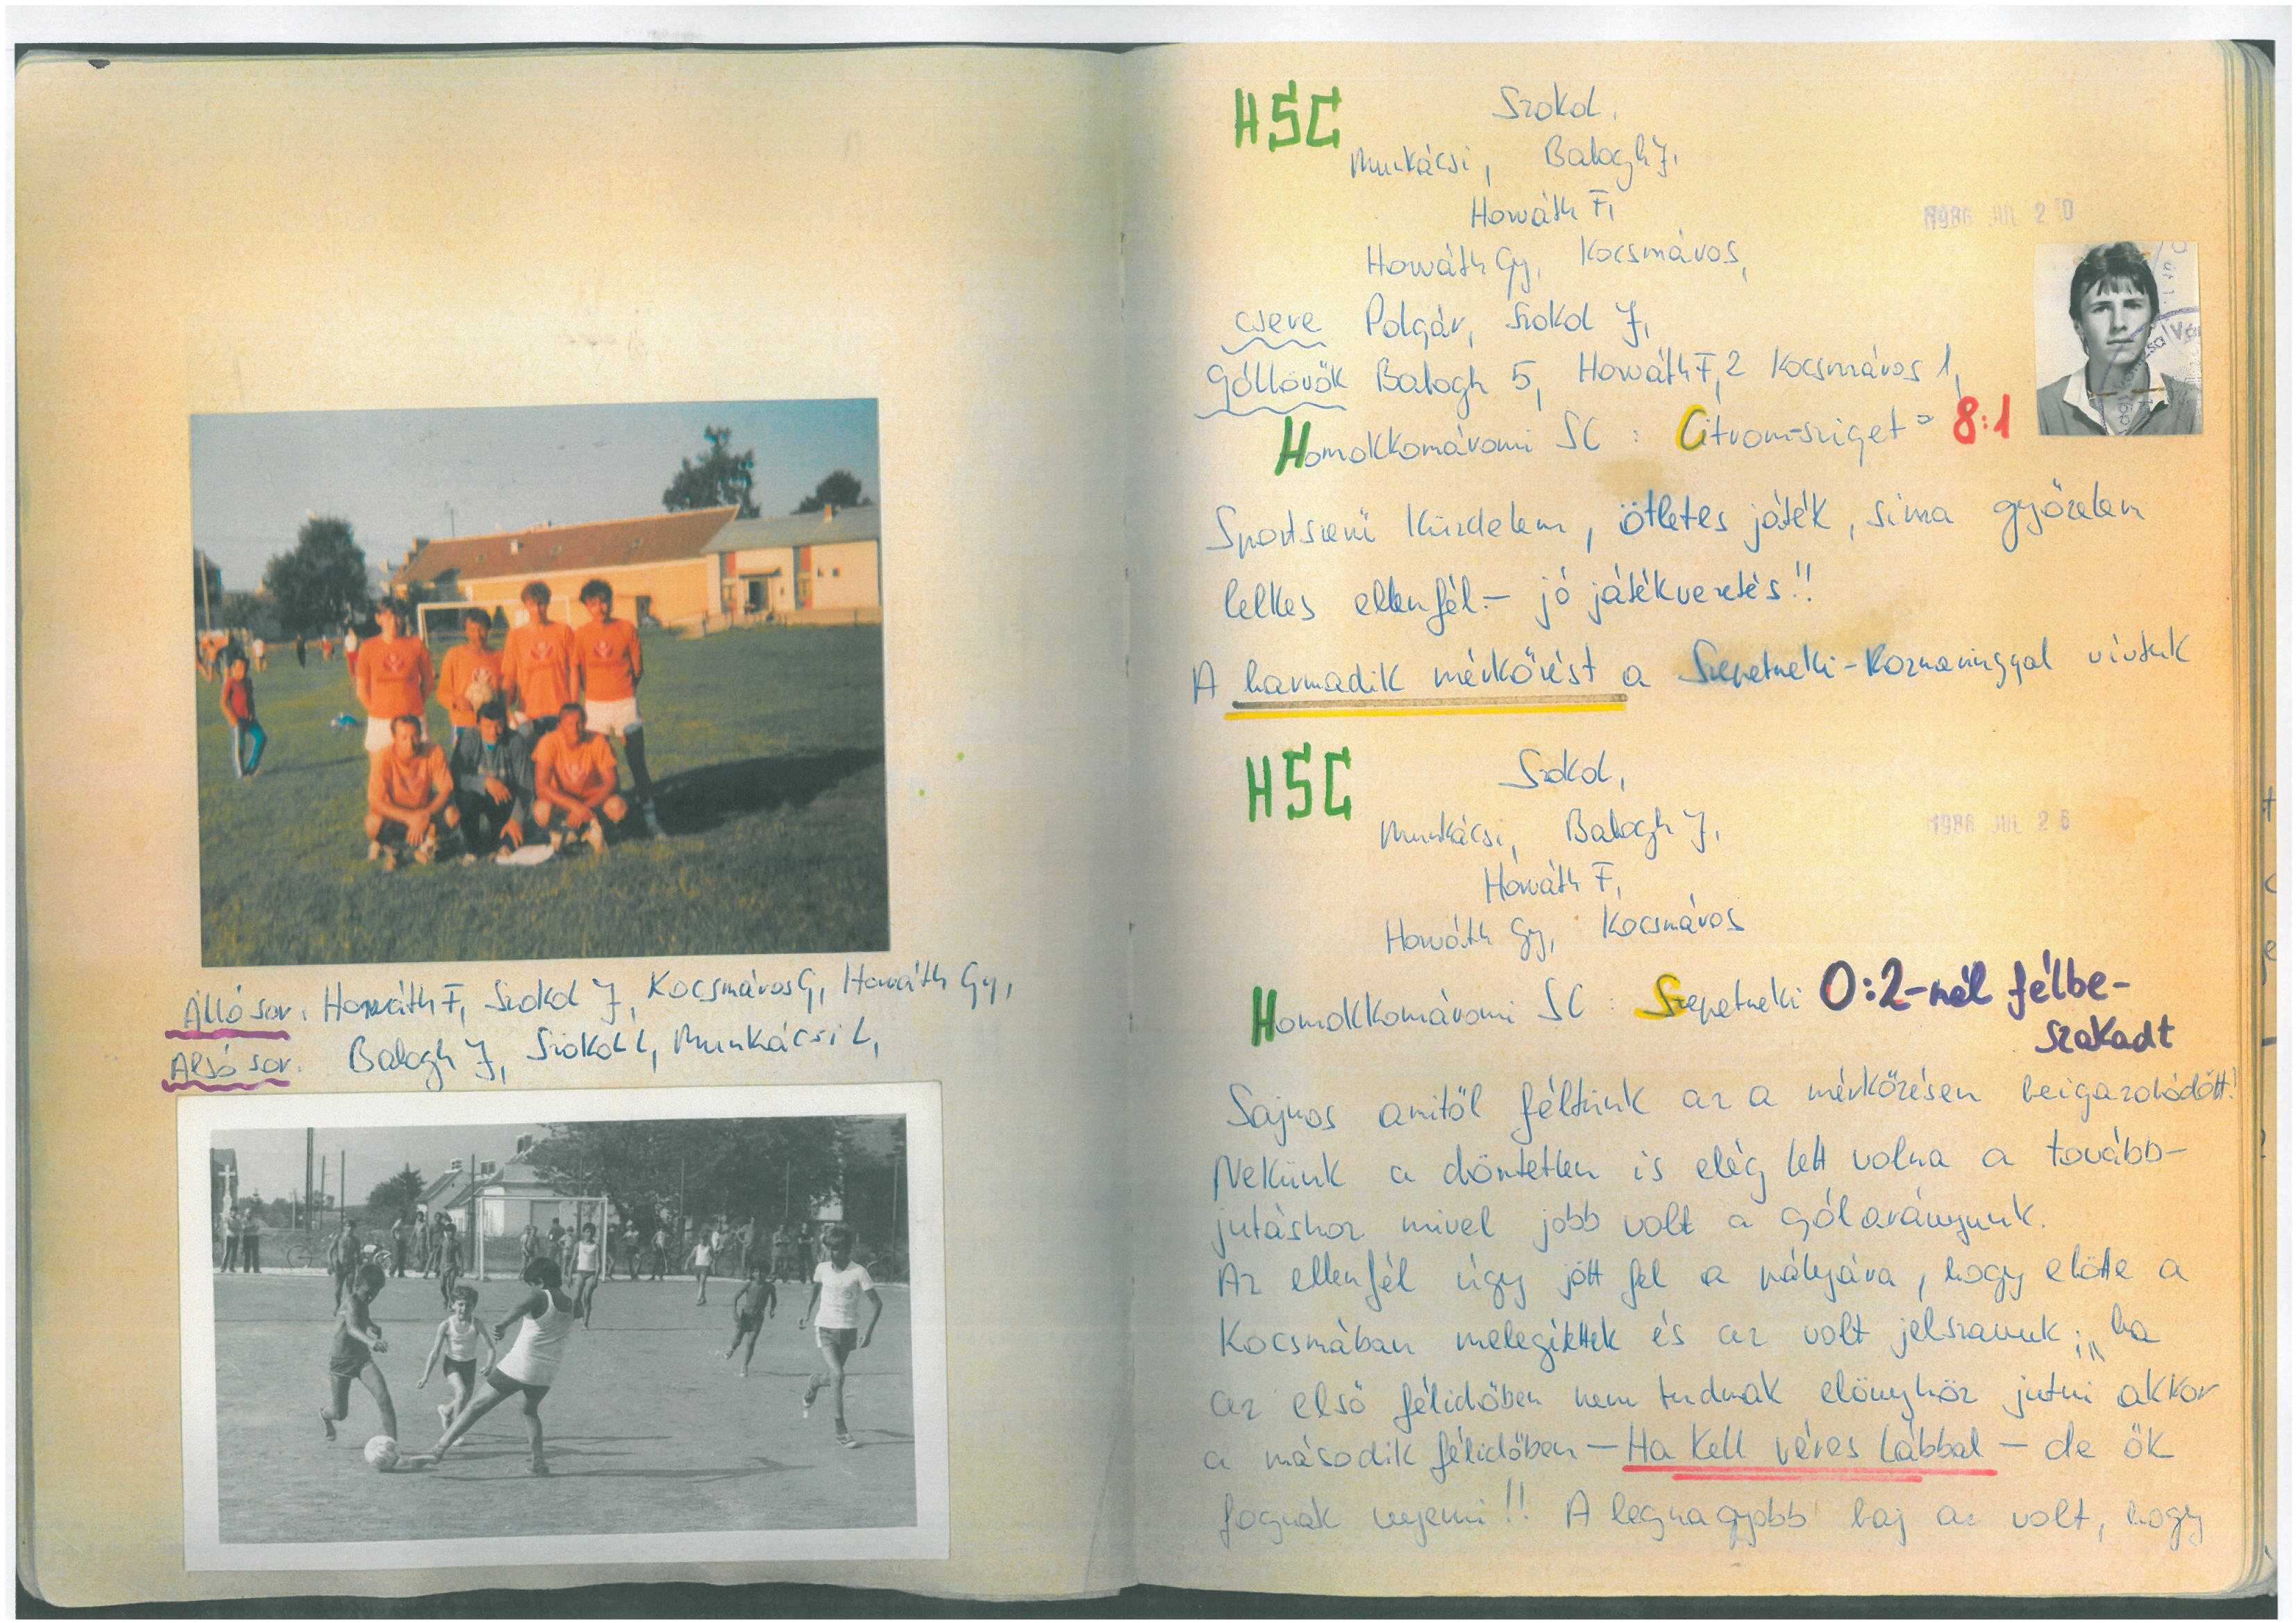 Álló sor. Horváth F, Szokol J, Kocsmáros G, Horváth Gy,
Alsó sor. Balogh J, Szokol L, Munkácsi L,
HSC
Szokol,
Munkácsi, Balogh J,
Horváth F,
Horváth Gy, Kocsmáros,
1986 JUL 20
csere Polgár, Szokol J,
Góllövők Balogh 5, Horváth F, 2 Kocsmáros 1,
Homokkomáromi SC : Citrom-sziget = 8:1
Sportszerű küzdelem, ötletes játék, sima győzelem
lelkes ellenfél - jó játékvezetés!!
A harmadik mérkőzést a Szepetneki-Kozmaringgal vívtuk
HSC
Szokol,
1986 JUL 26
Munkácsi, Balogh J,
Horváth F,
Horváth Gy, Kocsmáros
Homokkomáromi SC : Szepetneki 0:2-nél félbe-
szakadt
Sajnos amitől féltünk az a mérkőzésen beigazolódott!
Nekünk a döntetlen is elég lett volna a tovább-
jutáshoz mivel jobb volt a gólarányunk.
Az ellenfél úgy jött fel a pályára, hogy előtte a
Kocsmában melegítettek és az volt jelszavuk; „ha
az első félidőben nem tudnak előnyhöz jutni akkor
a második félidőben - Ha kell véres lábbal - de ők
fognak nyerni!! A legnagyobb baj az volt, hogy